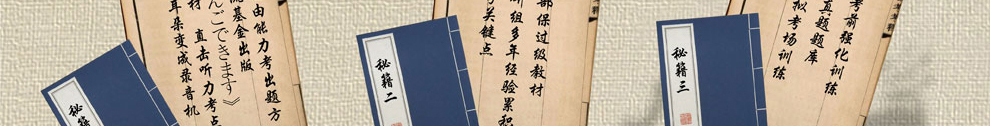 由能力考出题方
基金出版
んごできます》
材 直击听力考点
耳朵变成录音机
秘籍
部保过级教材
研组多年经验累积
考关键点
秘籍二
考前强化训练
真题题库
拟考场训练
秘籍三